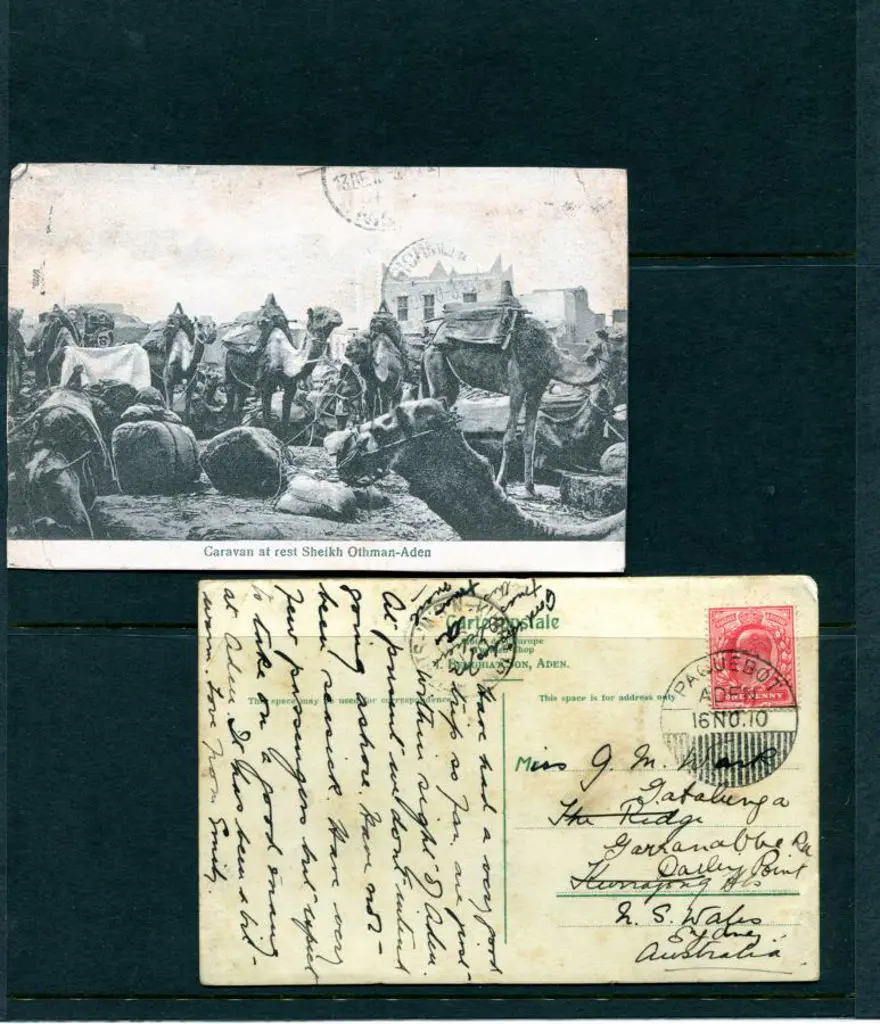 13 DE
RICHM
Caravan at rest Sheikh Othman-Aden
Carte postale
ADEN.
This space may be used for correspondence.
This space is for address only
PAQUEBOT
ADEN
16 NO.10
ONE PENNY
Miss G. M. Wark
The Ridge
Garranabbe Rd
Darley Point
Kurrajong Hts
N. S. Wales
Sydney
Australia
Have had a very good
trip so far, are just
within sight of Aden.
At present we don't intend
going ashore. Have not
been seasick. Have very
few passengers but expect
to take on a good many
at Aden. It has been a bit
warm. Love from Emily.